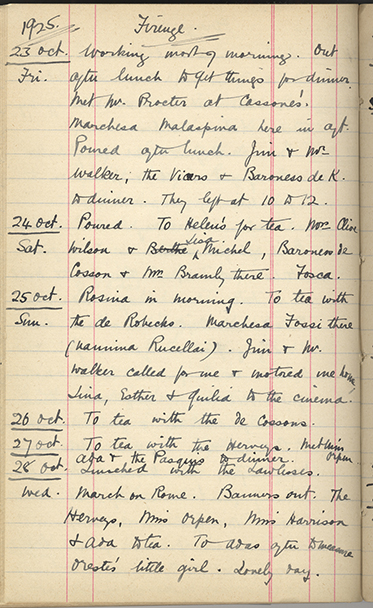 1925. Firenze.
23 Oct. Working most of morning. Out
Fri. after lunch to get things for dinner.
Met Mr. Procter at Cassone's.
Marchesa Malaspina here in aft.
Poured after lunch. Jim & Mr.
Walker, the Vicars & Baroness de K.
to dinner. They left at 10 to 12.
24 Oct. Poured. To Helen's for tea. Mrs Clive
Sat. Wilson & Berthe Lisa Michel, Baroness de
Cosson & Mrs. Bramly there. Tosca.
25 Oct. Rosina in morning. To tea with
Sun. the de Robecks. Marchesa Fossi there
(Nannina Rucellai). Jim & Mr.
Walker called for me & motored me home
Lina, Esther & Giulia to the cinema.
26 Oct. To tea with the de Cossons.
27 Oct. To tea with the Herveys. Met him
Ada & the Pasquis to dinner. Orpen.
28 Oct. Lunched with the Lawlesses.
Wed. March on Rome. Banners out. The
Herveys, Miss Orpen, Miss Harrison
& Ada to tea. To Adas after to measure
Oreste's little girl. Lovely day.